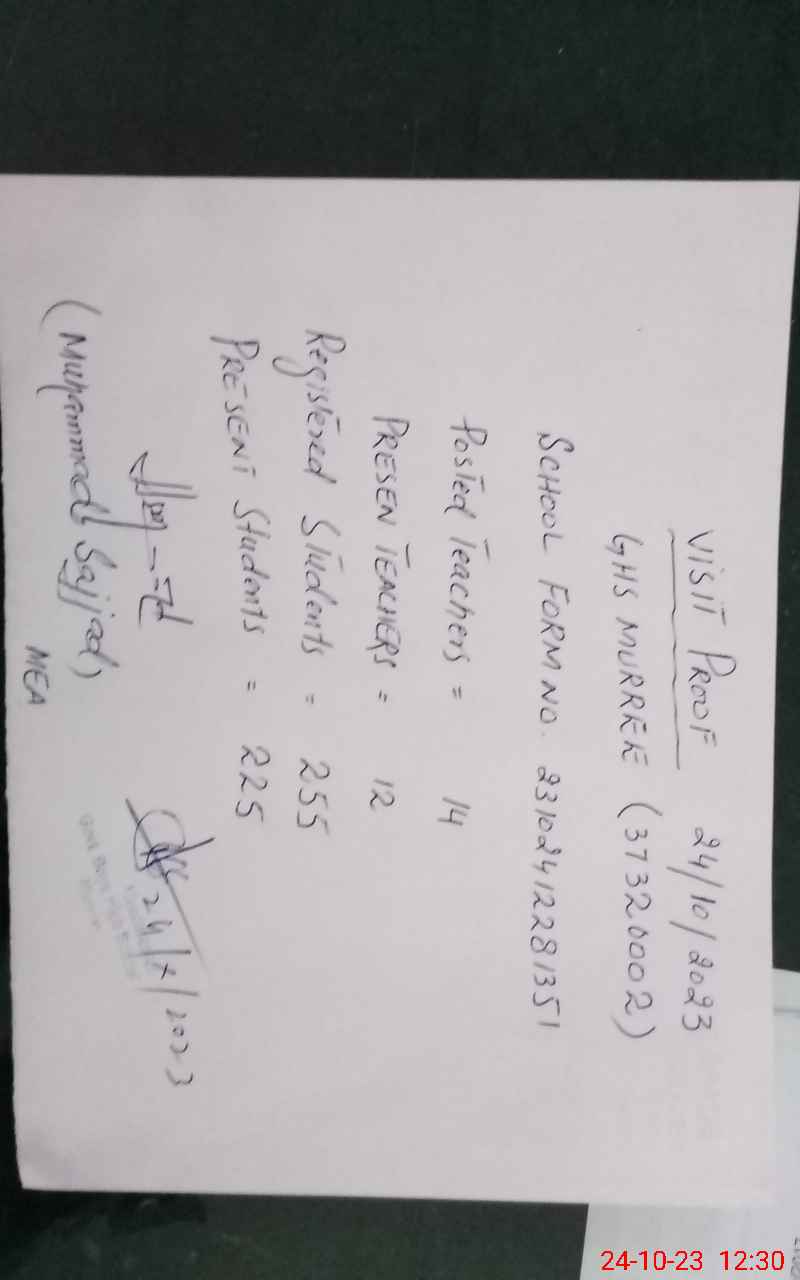 VISIT PROOF 24/10/2023
GHS MURREE (37320002)
SCHOOL FORM NO. 23102412281351
Posted Teachers = 14
PRESEN TEACHERS = 12
Registered Students = 255
PRESENT Students = 225
(Muhammad Sajjad)
MEA
24/x/2023
Govt Boys High
24-10-23 12:30